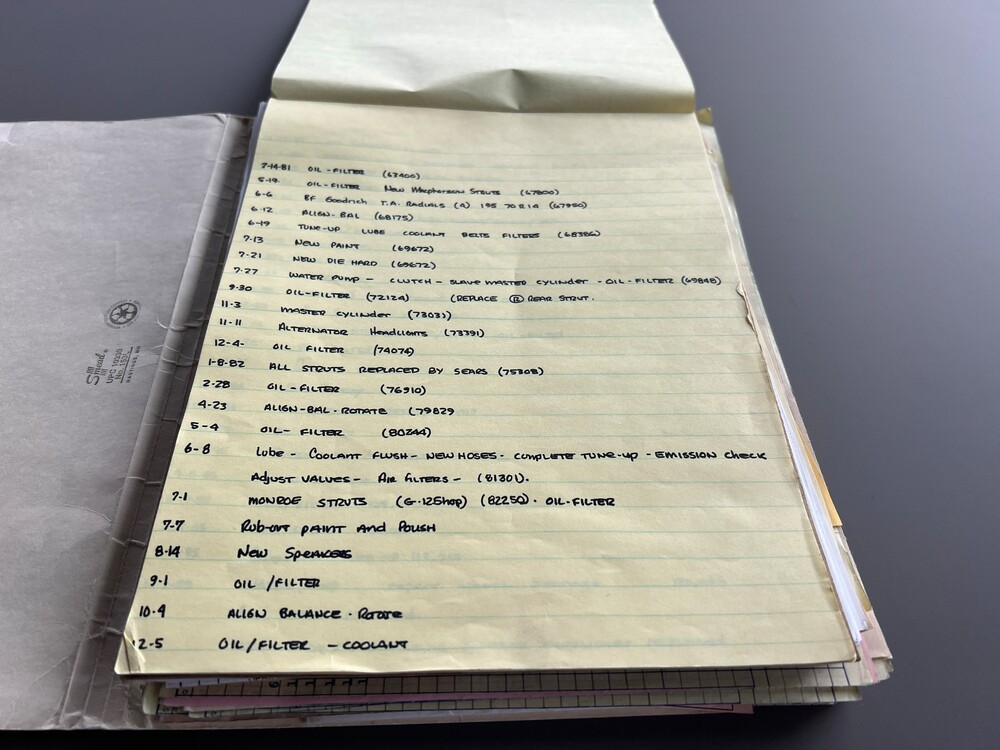 7-14-81 OIL-FILTER (63400)
5-19. OIL-FILTER New Macpherson Struts (67800)
6-6 BF Goodrich T.A. RADIALS (4) 195 70R14 (67950)
6-12 ALIGN-BAL (68175)
6-19 TUNE-UP LUBE COOLANT BELTS FILTERS (68386)
7-13 NEW PAINT (69672)
7-21 NEW DIE HARD (69672)
7-27 WATER PUMP - CLUTCH - SLAVE MASTER CYLINDER - OIL-FILTER (69848)
9-30 OIL-FILTER (72124) (REPLACE Ⓡ REAR STRUT.
11-3 MASTER CYLINDER (73031)
11-11 ALTERNATOR HEADLIGHTS (73391)
12-4- OIL FILTER (74074)
1-8-82 ALL STRUTS REPLACED BY SEARS (75308)
2-28 OIL-FILTER (76910)
4-23 ALIGN-BAL-ROTATE (79829
5-4 OIL-FILTER (80244)
6-8 Lube - Coolant Flush - NEW HOSES - Complete Tune-up - EMISSION Check
ADJUST VALVES - AIR FILTERS - (81301).
7-1 MONROE STRUTS (G-12Shop) (82250) - OIL-FILTER
7-7 RUB-OUT PAINT AND POLISH
8-14 New Speakers
9-1 OIL /FILTER
10-9 ALIGN BALANCE - ROTATE
12-5 OIL/FILTER - COOLANT
Smead®
UPC 10330
No. 153L
HASTINGS, MN